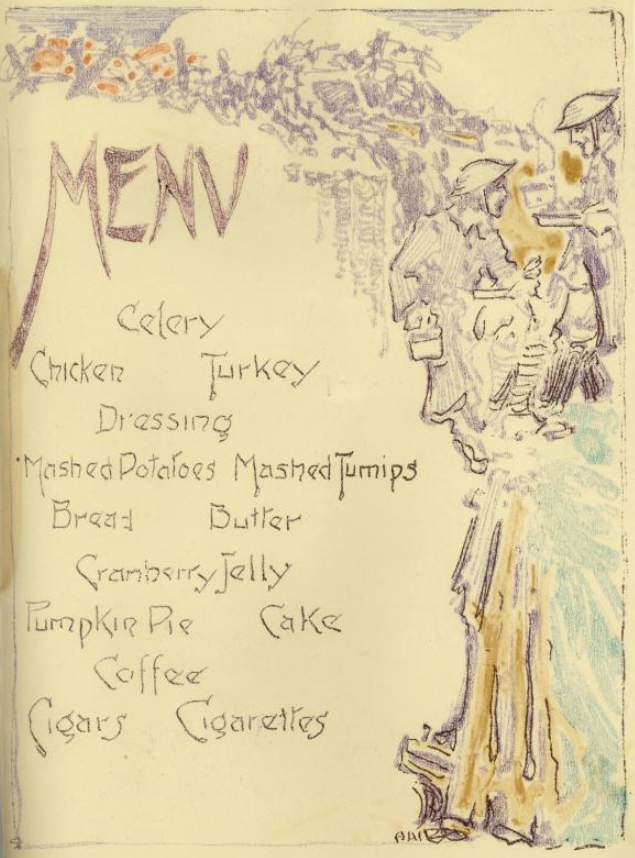 MENU
Celery
Chicken Turkey
Dressing
Mashed Potatoes Mashed Turnips
Bread Butter
Cranberry Jelly
Pumpkin Pie Cake
Coffee
Cigars Cigarettes